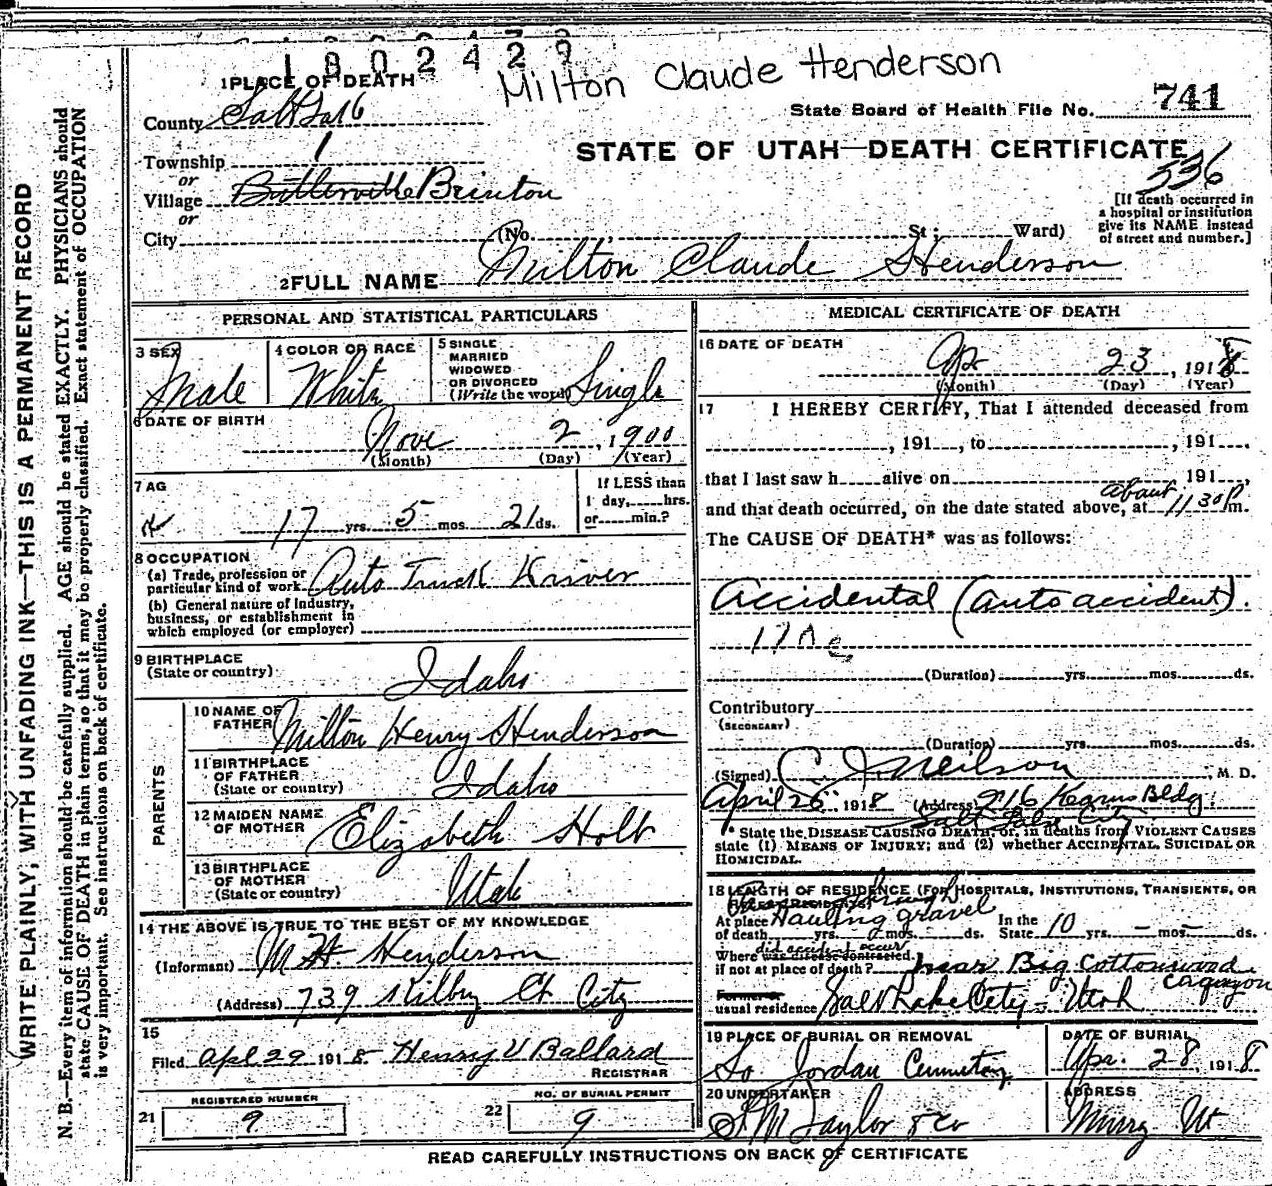 1002429
Milton Claude Henderson
1 PLACE OF DEATH
State Board of Health File No. 741
County Salt Lake
STATE OF UTAH—DEATH CERTIFICATE
Township 1
336
or
Village Butlerville Brinton
or
[If death occurred in
a hospital or institution
give its NAME instead
of street and number.]
City (No. , St; Ward)
2 FULL NAME Milton Claude Henderson
PERSONAL AND STATISTICAL PARTICULARS
3 SEX Male
4 COLOR OR RACE White
5 SINGLE
MARRIED
WIDOWED
OR DIVORCED
(Write the word) Single
6 DATE OF BIRTH
Nove 2, 1900
(Month) (Day) (Year)
7 AG
17 yrs. 5 mos. 21 ds.
If LESS than
1 day, hrs.
or min.?
8 OCCUPATION
(a) Trade, profession or
particular kind of work Auto Truck Driver
(b) General nature of Industry,
business, or establishment in
which employed (or employer)
9 BIRTHPLACE
(State or country) Idaho
PARENTS
10 NAME OF
FATHER Milton Henry Henderson
11 BIRTHPLACE
OF FATHER
(State or country) Idaho
12 MAIDEN NAME
OF MOTHER Elizabeth Holt
13 BIRTHPLACE
OF MOTHER
(State or country) Utah
14 THE ABOVE IS TRUE TO THE BEST OF MY KNOWLEDGE
(Informant) M H Henderson
(Address) 739 Kilby Ct City
15
Filed Apl 29 1918 Henry V Ballard
REGISTRAR
21 REGISTERED NUMBER
9
22 NO. OF BURIAL PERMIT
9
MEDICAL CERTIFICATE OF DEATH
16 DATE OF DEATH
Ap 23, 1918
(Month) (Day) (Year)
17 I HEREBY CERTIFY, That I attended deceased from
, 191 , to , 191 ,
that I last saw h alive on 191 ,
and that death occurred, on the date stated above, at about 11 30 P m.
The CAUSE OF DEATH* was as follows:
Accidental (auto accident).
(Duration) yrs. mos. ds.
Contributory
(SECONDARY)
(Duration) yrs. mos. ds.
(Signed) C J Neilson, M. D.
April 26 1918 (Address) 916 Kearns Bldg.
Salt Lake City
* State the DISEASE CAUSING DEATH, or, in deaths from VIOLENT CAUSES
state (1) MEANS OF INJURY; and (2) whether ACCIDENTAL, SUICIDAL OR
HOMICIDAL.
18 LENGTH OF RESIDENCE (FOR HOSPITALS, INSTITUTIONS, TRANSIENTS, OR
RECENT RESIDENTS)
through
Hauling gravel
At place
of death yrs. mos. ds.
In the
State 10 yrs. – mos. – ds.
did accident occur
Where was disease contracted,
if not at place of death? near Big Cottonwood
Canyon
Former or
usual residence Salt Lake City – Utah
19 PLACE OF BURIAL OR REMOVAL
So Jordan Cemetery
DATE OF BURIAL
Apr. 28 1918
20 UNDERTAKER
S M Taylor & Co
ADDRESS
Murry Ut
READ CAREFULLY INSTRUCTIONS ON BACK OF CERTIFICATE
WRITE PLAINLY, WITH UNFADING INK—THIS IS A PERMANENT RECORD
N. B.—Every item of information should be carefully supplied. AGE should be stated EXACTLY. PHYSICIANS should
state CAUSE OF DEATH in plain terms, so that it may be properly classified. Exact statement of OCCUPATION
is very important. See instructions on back of certificate.